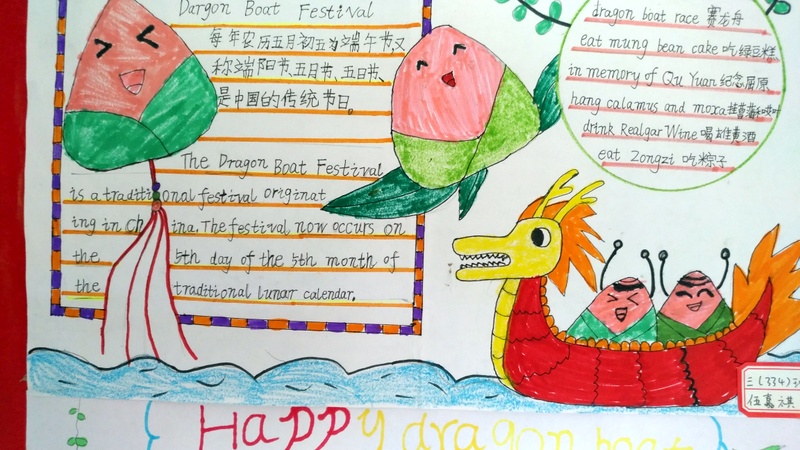 Dargon Boat Festival
每年农历五月初五为端午节,又
称端阳节、五月节、五日节、
是中国的传统节日。
The Dragon Boat Festival
is a traditional festival originat
ing in China. The festival now occurs on
the 5th day of the 5th month of
the traditional lunar calendar.
dragon boat race 赛龙舟
eat mung bean cake 吃绿豆糕
in memory of Qu Yuan 纪念屈原
hang calamus and moxa 挂菖蒲和
drink Realgar Wine 喝雄黄酒
eat Zongzi 吃粽子
三(334)
伍嘉祺
Happy dragon boat